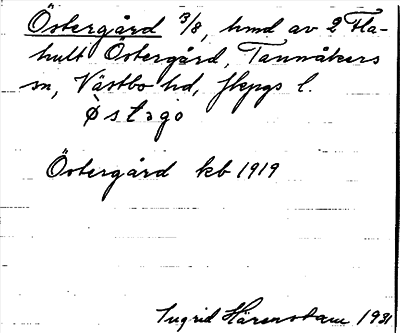 Östergård 3/8, hmd av 2 Fla-
hult Östergård, Tannåkers
sn, Västbo hd, Jkpgs l.
Östergård kb 1919
Ingrid Härenstam 1931